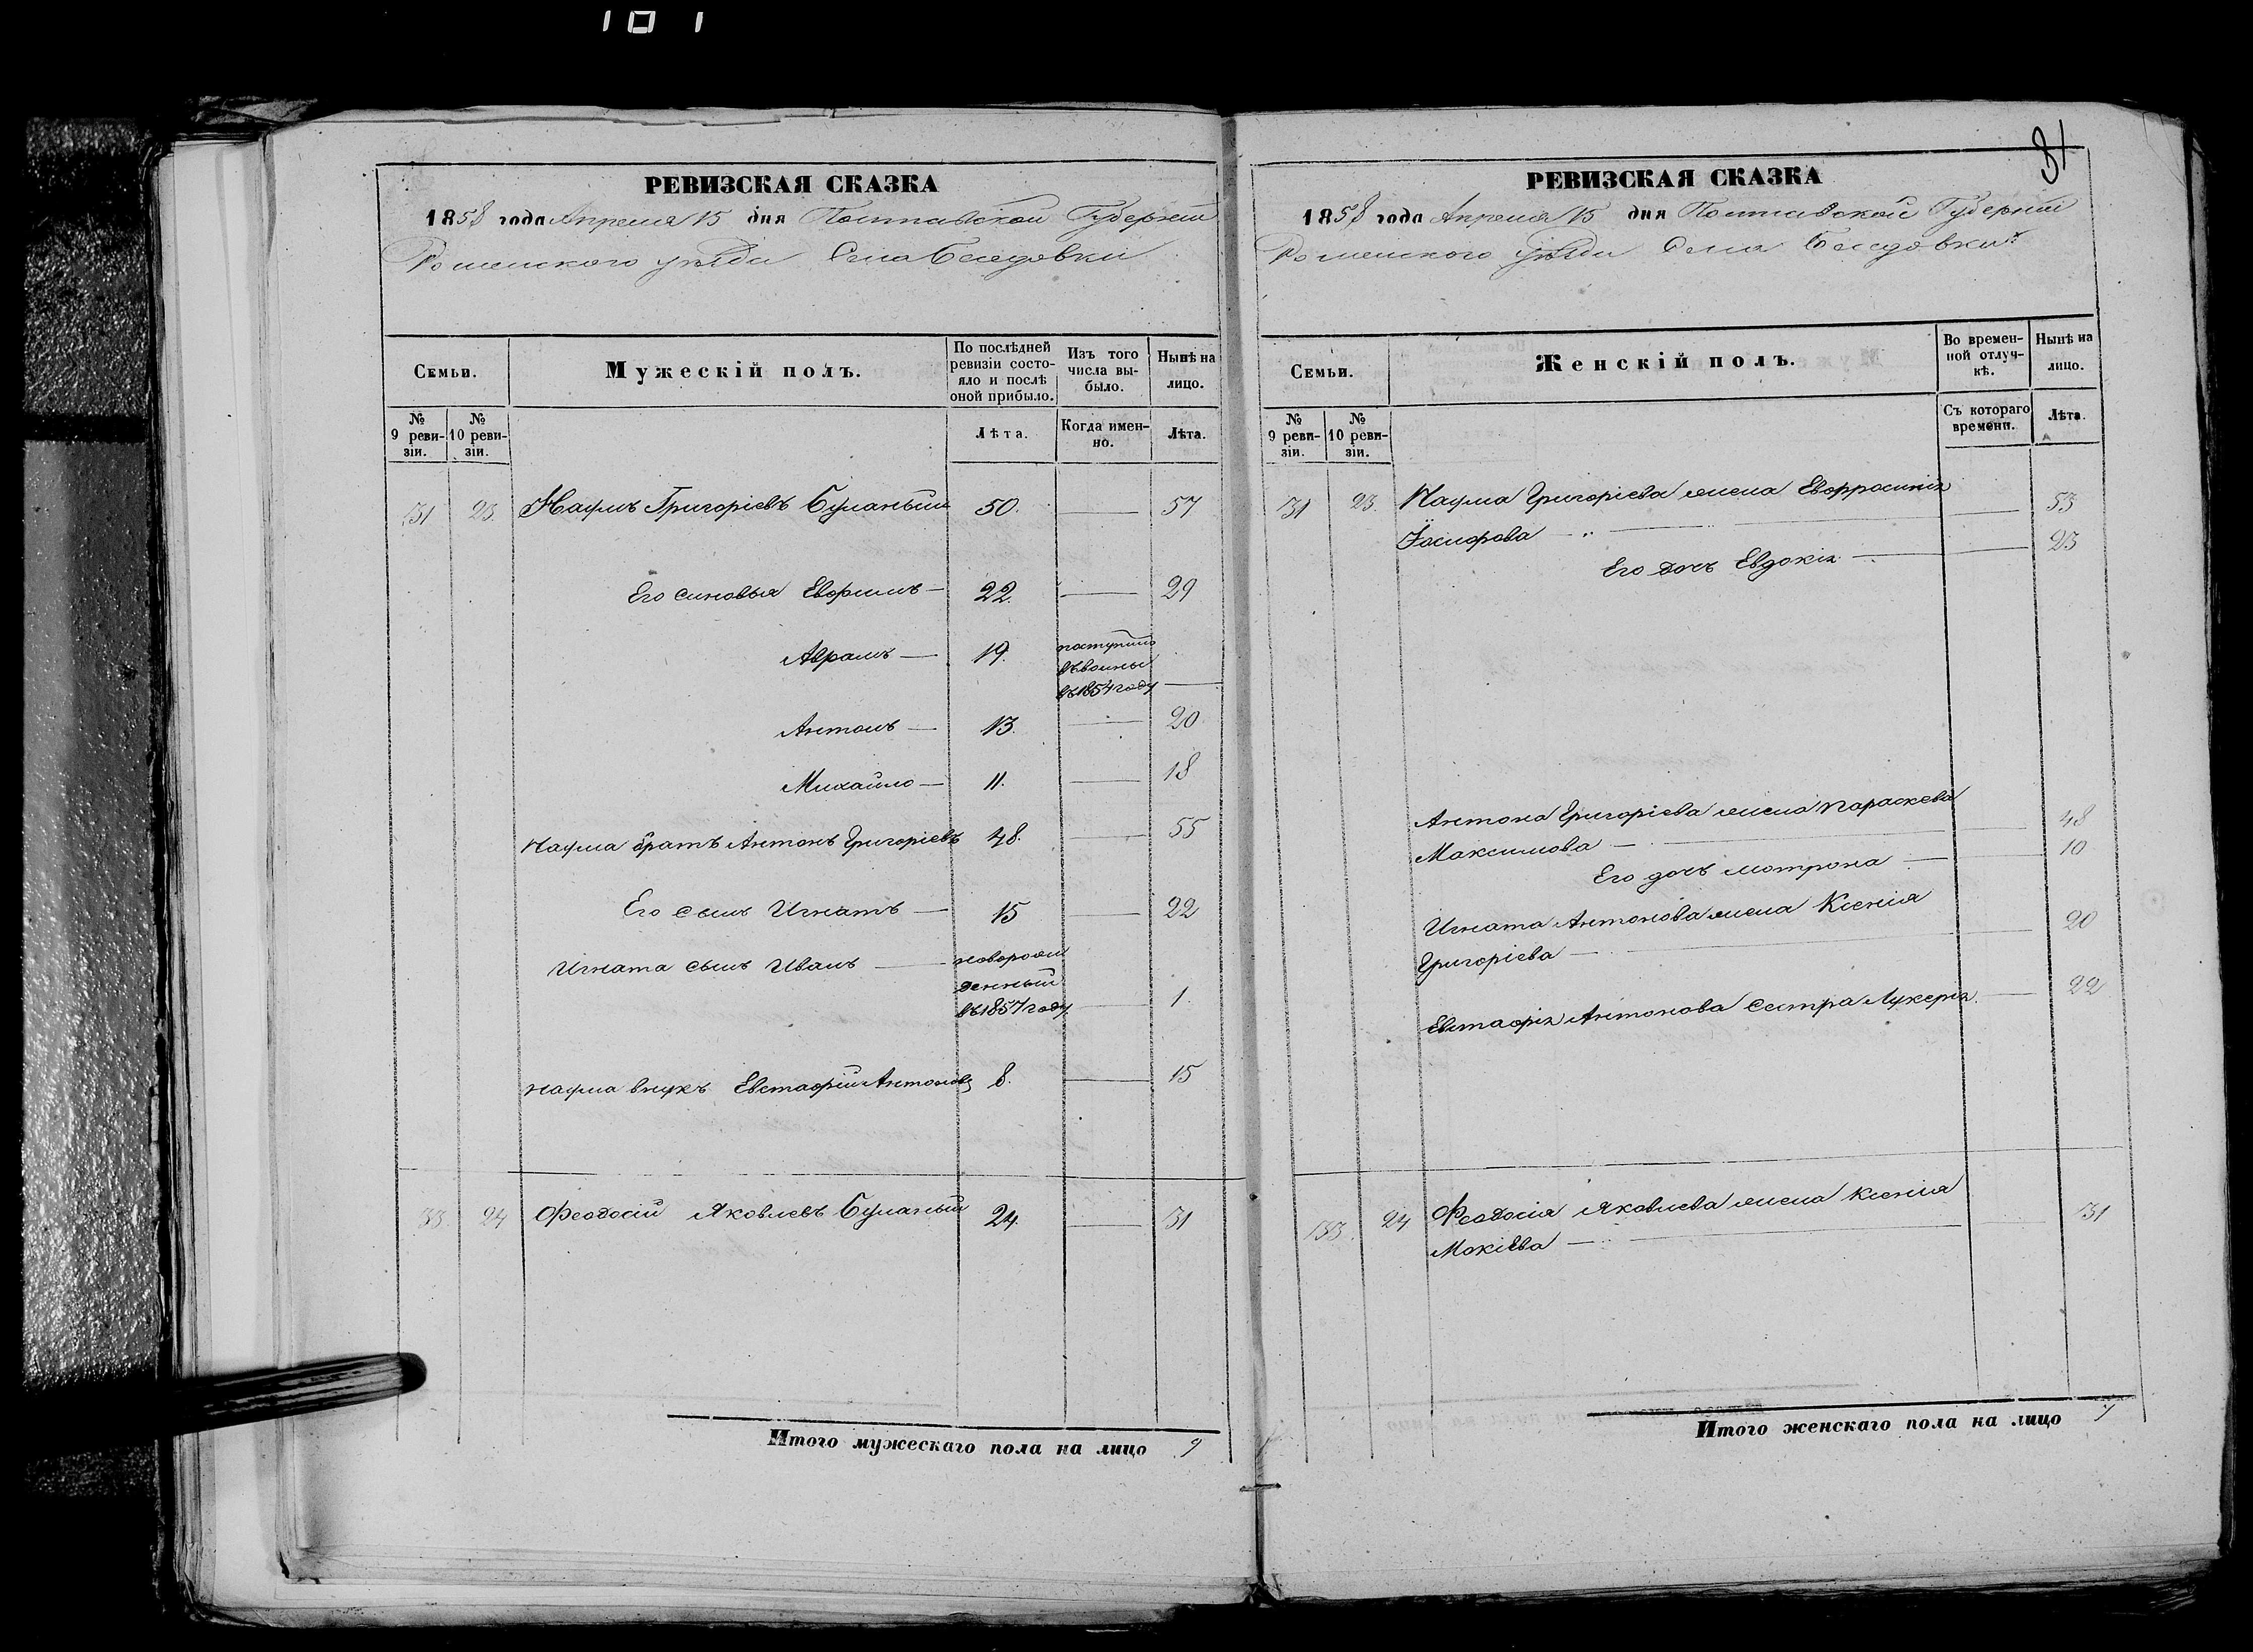 101
РЕВИЗСКАЯ СКАЗКА
1858 года Апреля 15 дня Полтавской Губерніи
Роменского уѣзди Села Беседовки
Семьи.
Мужескій полъ.
По послѣдней ревизіи состояло и послѣ оной прибыло.
Изъ того числа выбыло.
Нынѣ на лицо.
№ 9 ревизіи.
№ 10 ревизіи.
Лѣта.
Когда именно.
Лѣта.
31 23. Наумъ Григоріевъ Буланый 50. 57
Его синовья Евфимъ 22. 29
Аврамъ 19. поступило
въ воины
въ 1854 году
Антонъ 13. 20
Михайло 11. 18
Наума братъ Антонъ Григоріевъ 48. 55
Его сынъ Игнатъ 15 22
Игната сынъ Иванъ новорож
денный
въ 1857 году 1
Наума внукъ Евстафій Антоновъ 8. 15
33. 24 Феодосій Яковлевъ Буланый 24. 31
Итого мужескаго пола на лицо 9
81
РЕВИЗСКАЯ СКАЗКА
1858 года Апреля 15 дня Полтавской Губерніи
Роменского уѣзди Села Беседовки
Семьи.
Женскій полъ.
Во временной отлучкѣ.
Нынѣ на лицо.
№ 9 ревизіи.
№ 10 ревизіи.
Съ котораго времени.
Лѣта.
31 23. Наума Григоріева жена Евфросинія
Іосифова 53
Его дочь Евдокія 23
Антона Григоріева жена Параскева
Максимова 48
Его дочь Мотрона 10
Игната Антонова жена Ксенія
Григоріева 20
Евстафія Антонова сестра Лукерія 22
33. 24 Феодосія Яковлева жена Ксенія
Мокіева 31
Итого женскаго пола на лицо 7